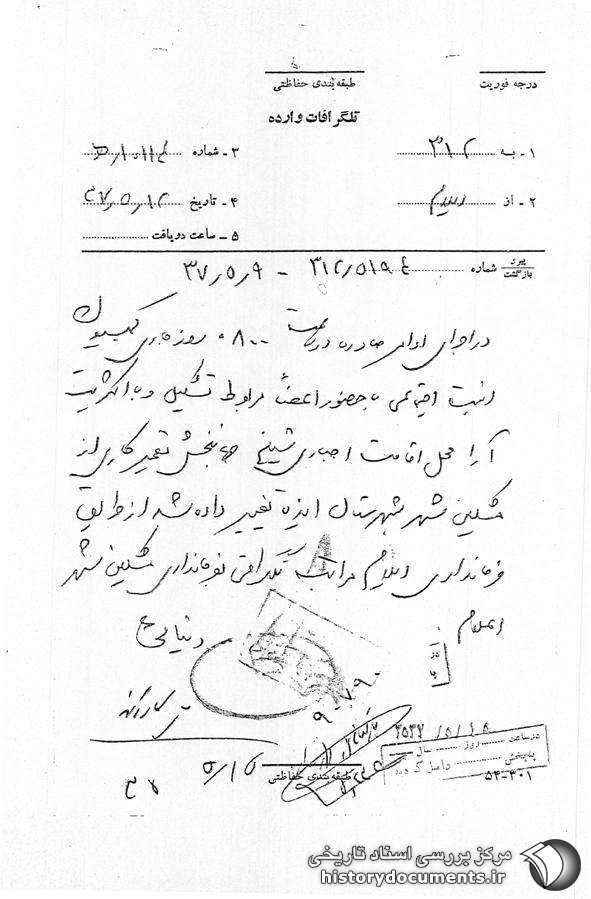 درجه فوریت
طبقه بندی حفاظتی
تلگرافات وارده
۱ - به ۳۱۲
۳ - شماره
۲ - از
۴ - تاریخ ۳۷/۵/۱۲
۵ - ساعت دریافت
پیرو
بازگشت
شماره ۳۱۲/۵۱۹۴ - ۳۷/۵/۹
در اجرای اوامر صادره در ساعت ۰۸۰۰ روز جاری کمیسیون
امنیت اجتماعی با حضور اعضاء مربوط تشکیل و با اکثریت
آرا محل اقامت اجباری شیخ جهانبخش تعمیرکاری از
مشکین شهر بشهرستان ایذه تغییر داده شد از طریق
فرمانداری مراتب تلگرافی بفرمانداری مشکین شهر
اعلام
طبقه بندی حفاظتی
۲۵۳۷/۵/۱۵
در ساعت روز سال
به بخش واصل گردید
۵۴-۳۰۱
مرکز بررسی اسناد تاریخی
historydocuments.ir